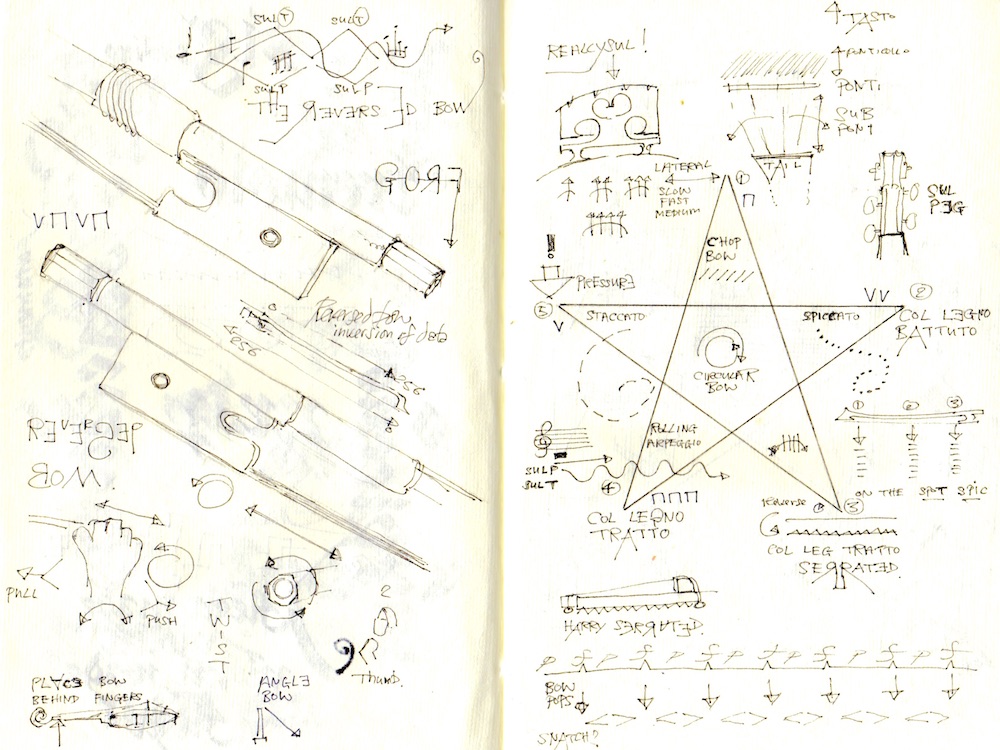 SUL T SUL T
SUL P SUL P
THE REVERSED BOW
FROG
V Π V Π
Reversed bow,
inversion of data
REVERGED
BOW
PULL
PUSH
TWIST
2
Thumb.
PLACE BOW
BEHIND FINGERS
ANGLE
BOW
TASTO
REALLY SUL!
PONTICELLO
PONTI
SUB
PONY
TAIL
LATERAL
SLOW
FAST
MEDIUM
1
SUL
PEG
CHOP
BOW
!
PRESSURE
5
V
STACCATO
SPICCATO
VV
2
COL LEGNO
BATTUTO
CIRCULAR
BOW
ROLLING
ARPEGGIO
SUL P
SUL T
4
1 2 3
ON THE SPOT SPIC
COL LEGNO
TRATTO
reverse
3
COL LEG TRATTO
SERRATED.
HARRY SERRATED.
P P P P P P P
BOW
POPS
< > < > < > < > < > < >
SNATCH?